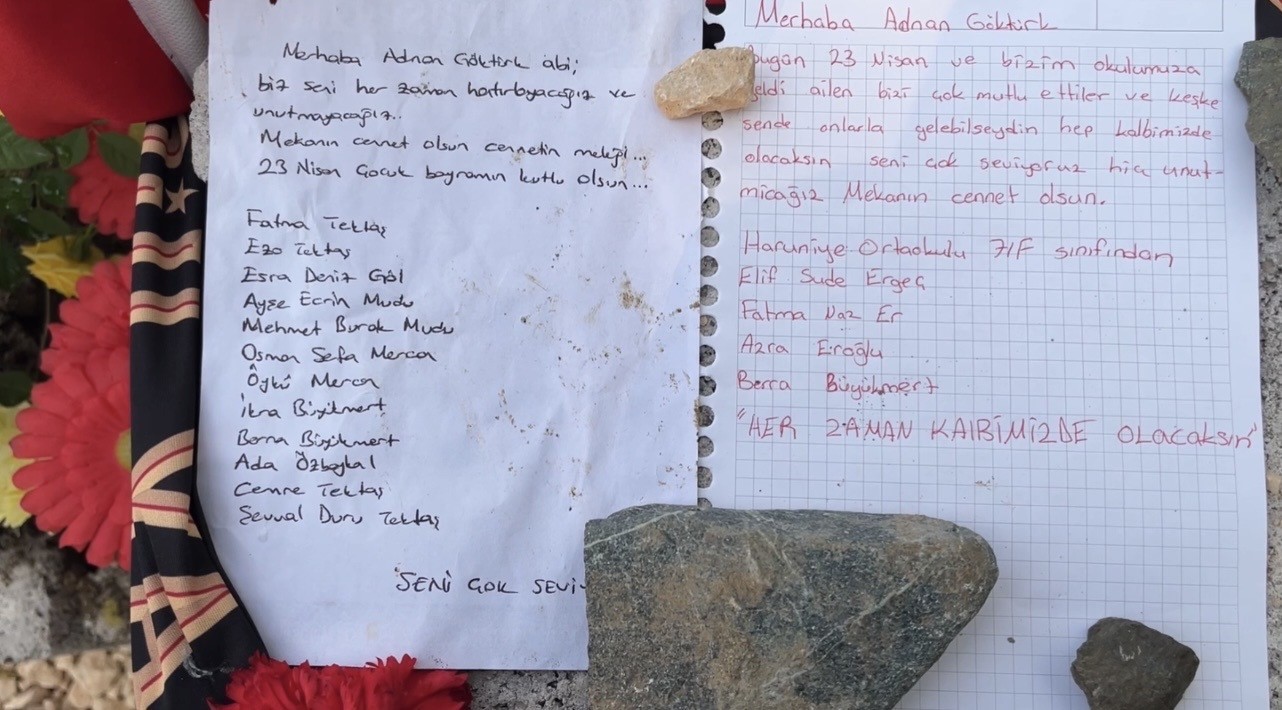 Merhaba Adnan Göktürk abi;
biz seni her zaman hatırlayacağız ve
unutmayacağız..
Mekanın cennet olsun cennetin meleği...
23 Nisan Çocuk bayramın kutlu olsun...
Fatma Tektaş
Ezo Tektaş
Esra Deniz Göl
Ayşe Ecrin Mudu
Mehmet Burak Mudu
Osman Sefa Mercan
Öykü Mercan
İkra Büyükmert
Berra Büyükmert
Ada Özbaykal
Cemre Tektaş
Şevval Duru Tektaş
SENİ ÇOK SEVİ
Merhaba Adnan Göktürk
Bugün 23 Nisan ve bizim okulumuza
geldi ailen bizi çok mutlu ettiler ve keşke
sende onlarla gelebilseydin hep kalbimizde
olacaksın seni çok seviyoruz hiç unut-
micağız Mekanın cennet olsun.
Haruniye Ortaokulu 7/F sınıfından
Elif Sude Ergeç
Fatma Naz Er
Azra Eroğlu
Berra Büyükmert
"HER ZAMAN KALBİMİZDE OLACAKSIN"